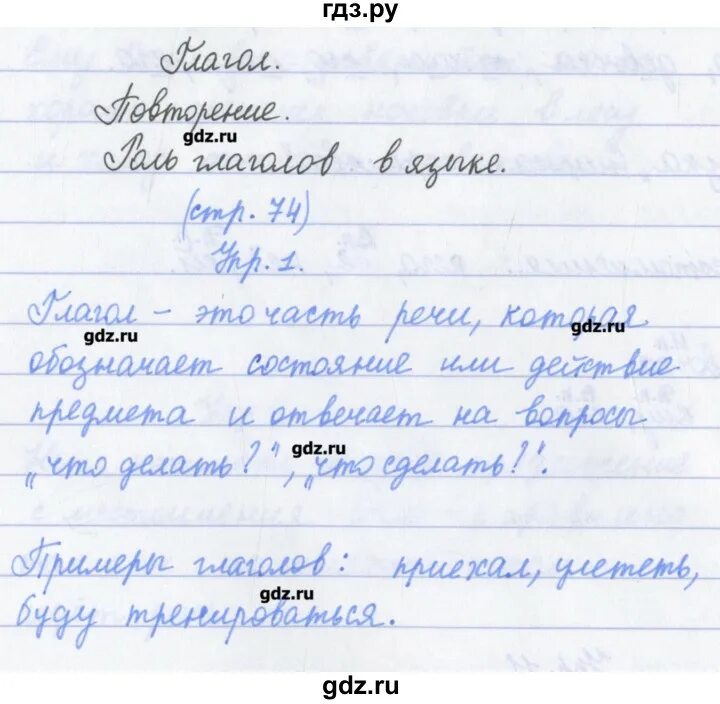 гдз.ру
Глагол.
Повторение.
gdz.ru
Роль глаголов в языке.
(стр. 74)
Упр. 1.
Глагол – это часть речи, которая
gdz.ru
gdz.ru
обозначает состояние или действие
предмета и отвечает на вопросы
gdz.ru
„что делать?", „что сделать?".
Примеры глаголов: приехал, улететь,
gdz.ru
буду тренироваться.
gdz.ru